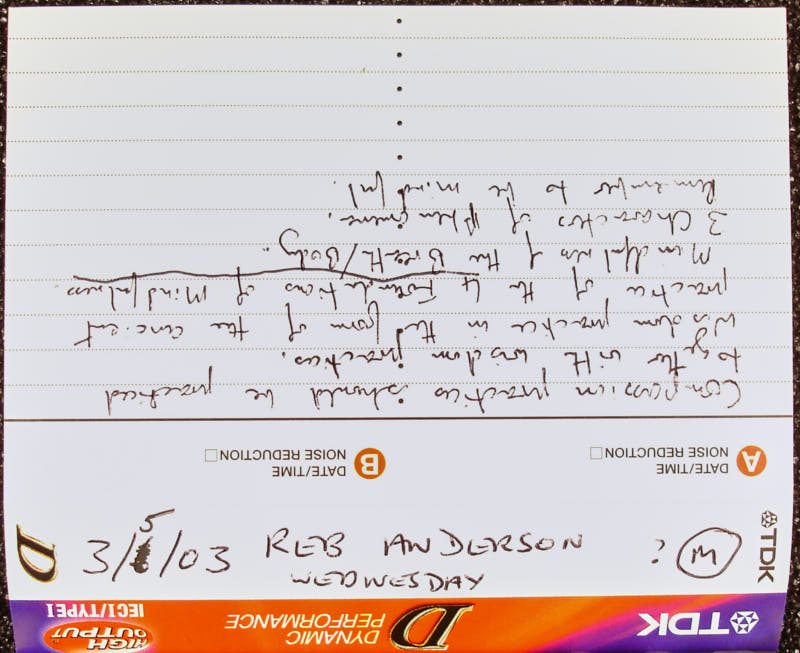 TDK D DYNAMIC PERFORMANCE HIGH OUTPUT IECI/TYPEI
WEDNESDAY
3/5/03 REB ANDERSON ? M
TDK
D
A DATE/TIME
NOISE REDUCTION
B DATE/TIME
NOISE REDUCTION
Compassion practices should be practiced
together with wisdom practices.
Wisdom practice in the form of the ancient
practice of the 4 Foundations of Mindfulness
Mindfulness of the Breath/Body..
3 Characters of Phenomena.
Remember to be mindful.